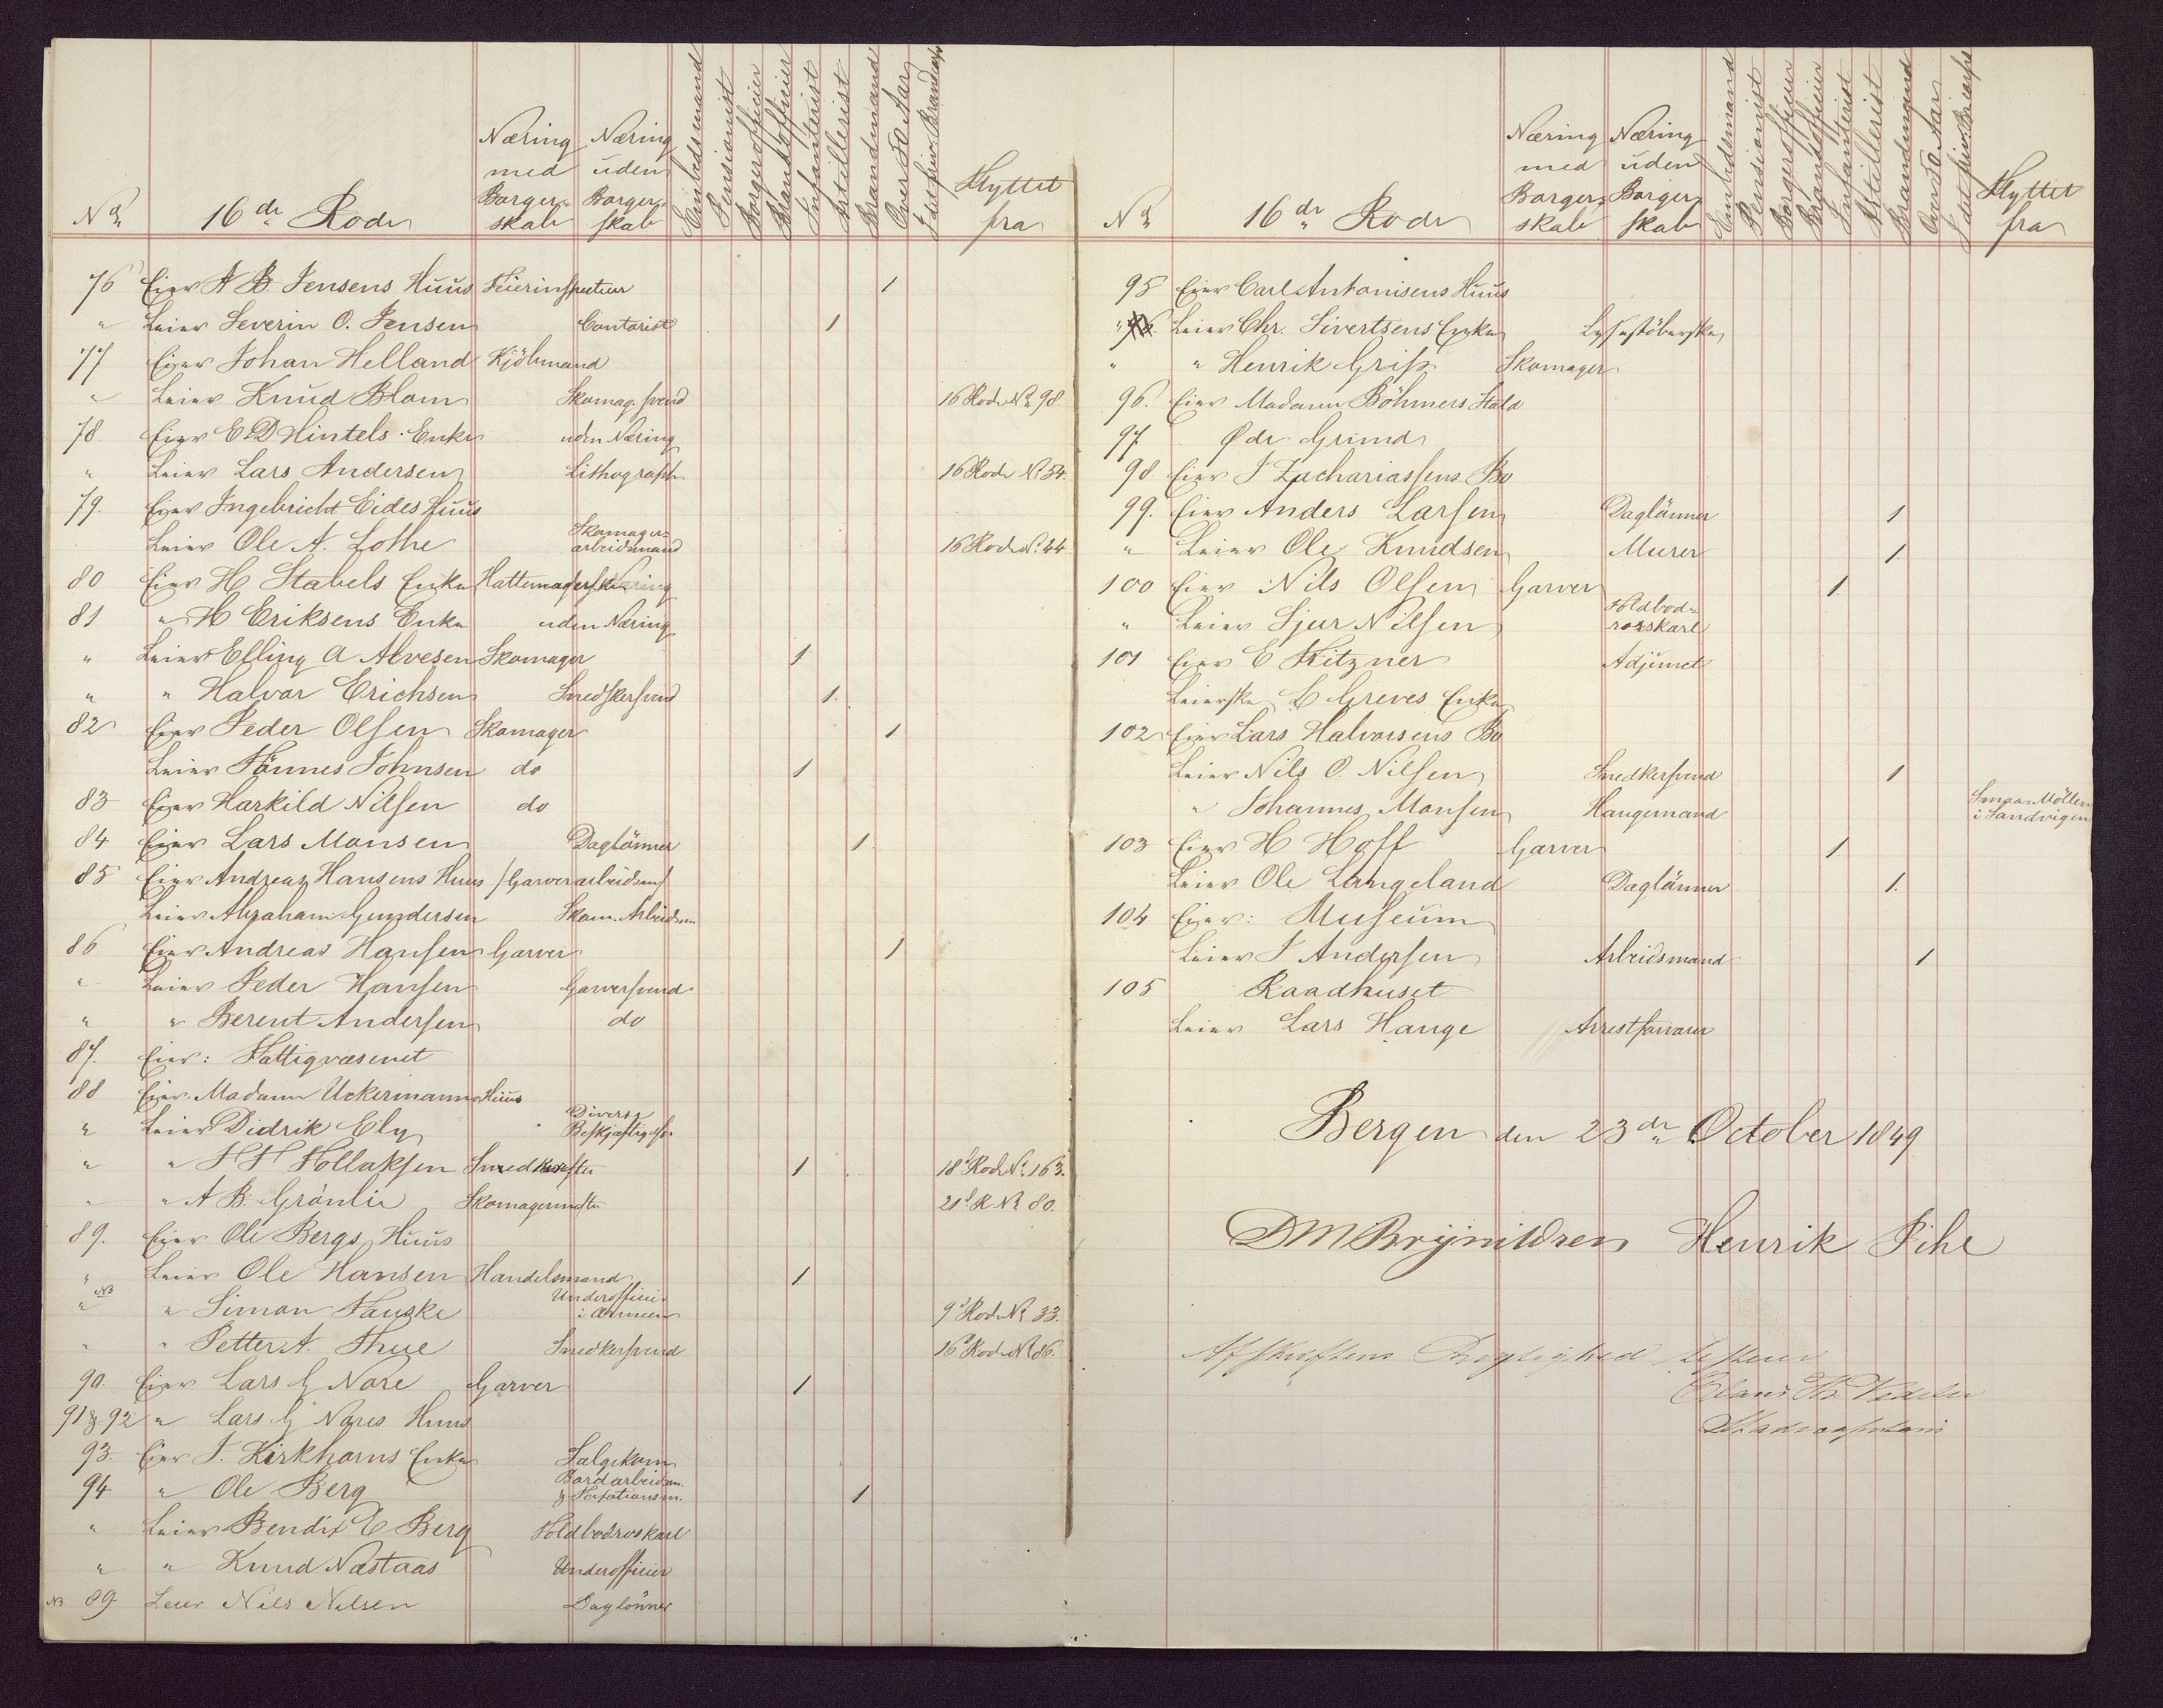 No 16de Rode Næring med Borgerskab Næring uden Borgerskab Embedsmand Pensionist Borgerofficier Brandofficier Infanterist Artillerist Brandmand Over 50 Aar Flyttet fra
76 Eier A B. Jensens Huus Feierinspecteur 1
" Leier Severin O. Jensen Contorist 1
77 Eier Johan Helland Kjöbmand
" Leier Knud Blom Skomag. svend 16 Rode No 98.
78. Eier E D Hintels Enke uden Næring
" Leier Lars Andersen Lithograph 16 Rode No 54.
79. Eier Ingebricht Eides Huus
Leier Ole A. Lothe Skomager-arbeidsmand 16 Rode No. 44
80 Eier H Stabels Enke Hattemagerske
81 " H Eriksens Enke uden Næring
" Leier Elling A Alvesen Skomager 1
" " Halvor Erichsen Snedkersvend 1.
82 Eier Peder Olsen Skomager 1
Leier Tönnes Johnsen do 1
83 Eier Harkild Nilsen do
84 Eier Lars Monsen Daglönner 1
85 Eier Andreas Hansens Huus /Garverarbeidsm/
Leier Abraham Gundersen Skom. Arbeidsm.
86 Eier Andreas Hansen Garver 1
" Leier Peder Hansen Garversvend
" " Berent Andersen do
87. Eier: Fattigvæsenet
88 Eier Madame Uckermanns Huus
" Leier Didrik Ely Diverse Beskjæftigelse
" " T T Tollaksen Snedkermester 1 18d Rode No. 163.
" " A B. Grönlie Skomagermester 21d R No 80.
89. Eier Ole Bergs Huus
" Leier Ole Hansen Handelsmand 1
NB " " Simon Fauske Underofficier i Armeen 9d Rode No 33.
" " Petter A. Thue Snedkersvend 16d Rode No 86.
90. Eier Lars G Nore Garver 1
91 & 92 " Lars G Nores Huus
93. Eier J. Kirkhorns Enke Salgskone
94 " Ole Berg Bordarbeidsm. & 1
" Leier Bendix E Berg Toldbodroskarl
" " Knud Næstaas Underofficier
NB 89 Leier Nils Nilsen Daglönner
No 16de Rode Næring med Borgerskab Næring uden Borgerskab Embedsmand Pensionist Borgerofficier Brandofficier Infanterist Artillerist Brandmand Over 50 Aar Flyttet fra
95 Eier Carl Antonisens Huus
" Leier Chr. Sivertsens Enke Lysestöberske
" " Henrik Griss Skomager
96. Eier Madame Böhmers Stald
97. Øde Grund
98 Eier J Zachariassens Bo
99. Eier Anders Larsen Daglönner 1
" Leier Ole Knudsen Murer 1
100 Eier Nils Olsen Garver 1
" Leier Sjur Nilsen Toldbodroerskarl
101 Eier E Kitzner Adjunct
Leierske L Greves Enke
102 Eier Lars Halvorsens Bo
Leier Nils O. Nilsen Snedkersvend 1
" Johannes Monsen Haugemand Smaae Möllen i Sandvigen
103 Eier H Hoff Garver 1
Leier Ole Langeland Daglönner 1.
104 Eier: Museum
Leier J Andersen Arbeidsmand 1
105 Raadhuset
Leier Lars Hauge Arrestforvarer
Bergen den 23de October 1849
D M Brynildsen Henrik Pihl
Afskriftens Rigtighed testerer
Claus Vedeler
Stadscapitain